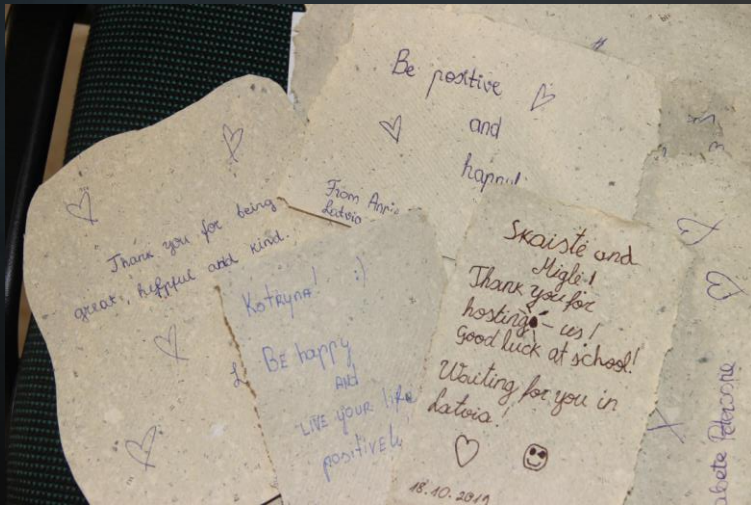 Be positive
and
From
Latvia
Thank you for being
great, helpful and kind.
Kotryna! :)
BE happy
AND
LIVE YOUR
positively
Skaistė and
Miglė!
Thank you for
hosting - us!
Good luck at school!
Waiting for you in
Latvia!
18.10.2019